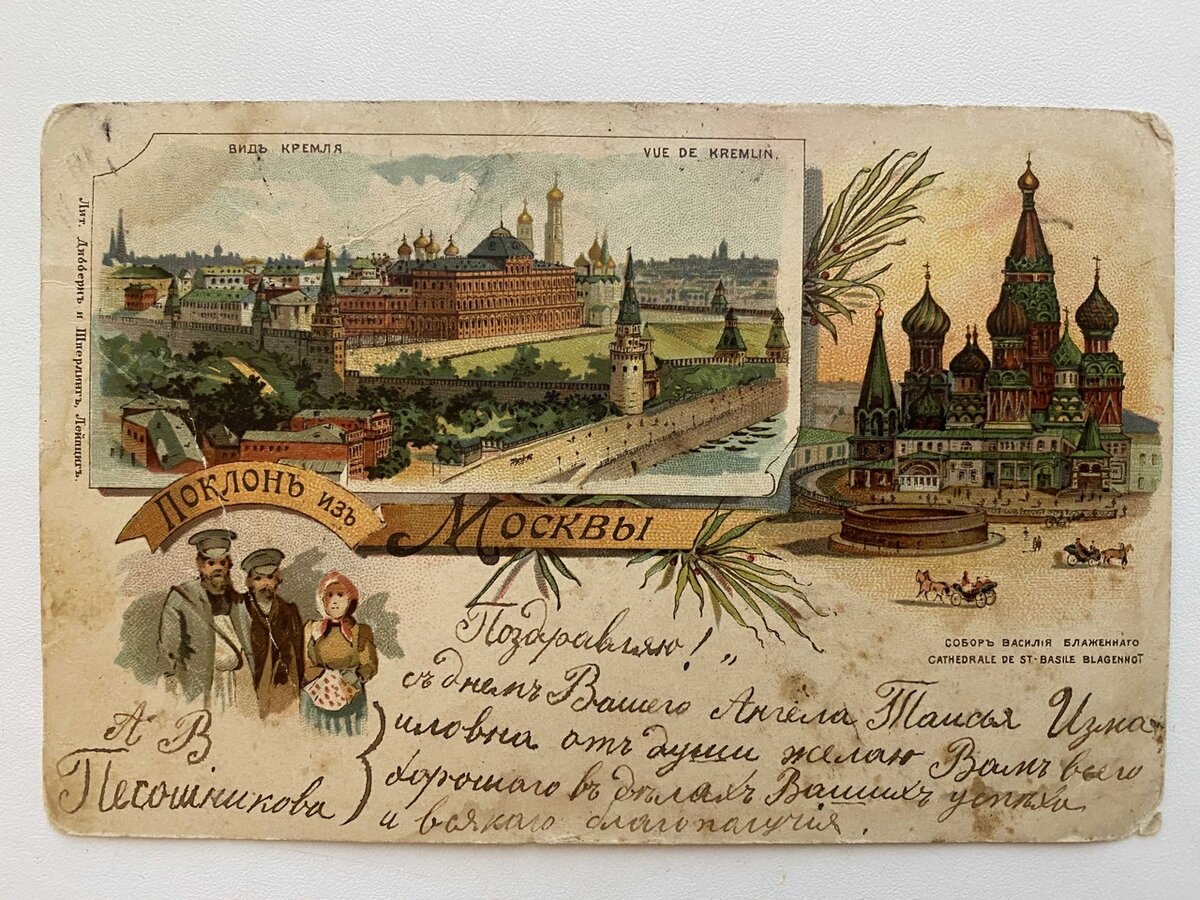 ВИДЪ КРЕМЛЯ
VUE DE KREMLIN.
Лит. Дибберпъ и Шперлингъ, Лейпцигъ.
Поклонъ изъ
Москвы
СОБОРЪ ВАСИЛІЯ БЛАЖЕННАГО
CATHEDRALE DE ST-BASILE BLAGENNOÏ
Поздравляю!
съ днемъ Вашего Ангела Таисья Изма
иловна отъ души желаю Вамъ всего
хорошаго въ дѣлахъ Вашихъ успѣха
и всякаго благополучія.
А В
Песошникова